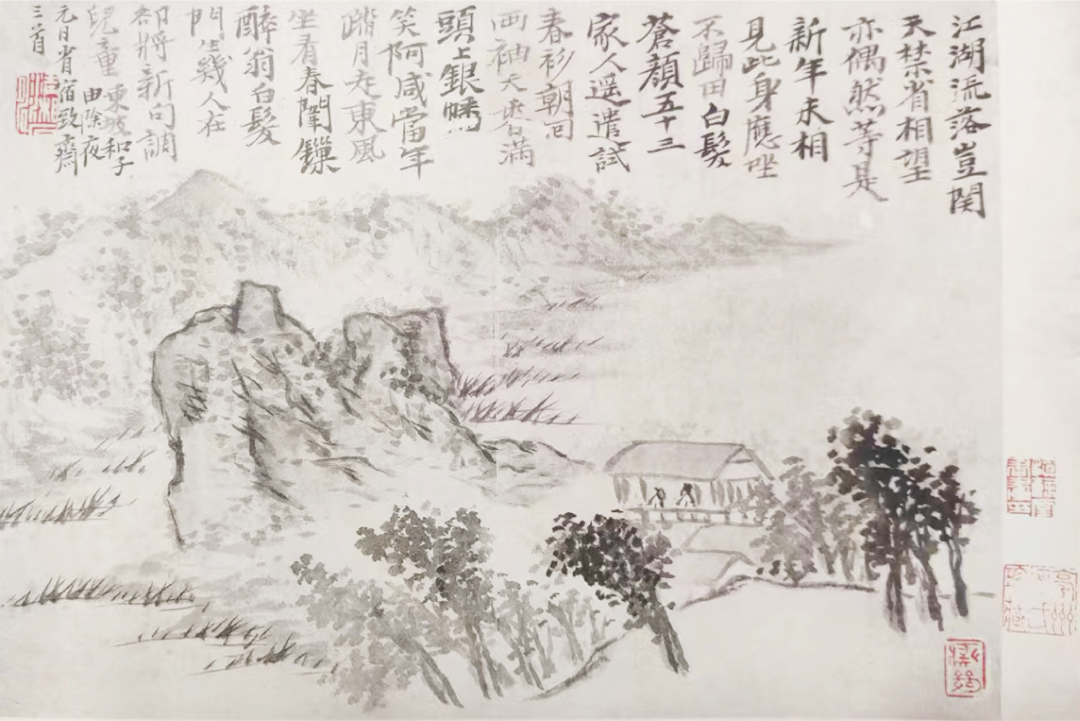 江湖流落豈関
天禁省相望
亦偶然等是
新年未相
見此身應坐
不歸田白髮
蒼顔五十三
家人遥遣試
春衫朝回
両袖天香滿
頭上銀幡
笑阿咸當年
踏月走東風
坐看春闈鏁
醉翁白髮
門生幾人在
却將新句調
兒童
東坡和子
由除夜
元日省宿致齋
三首